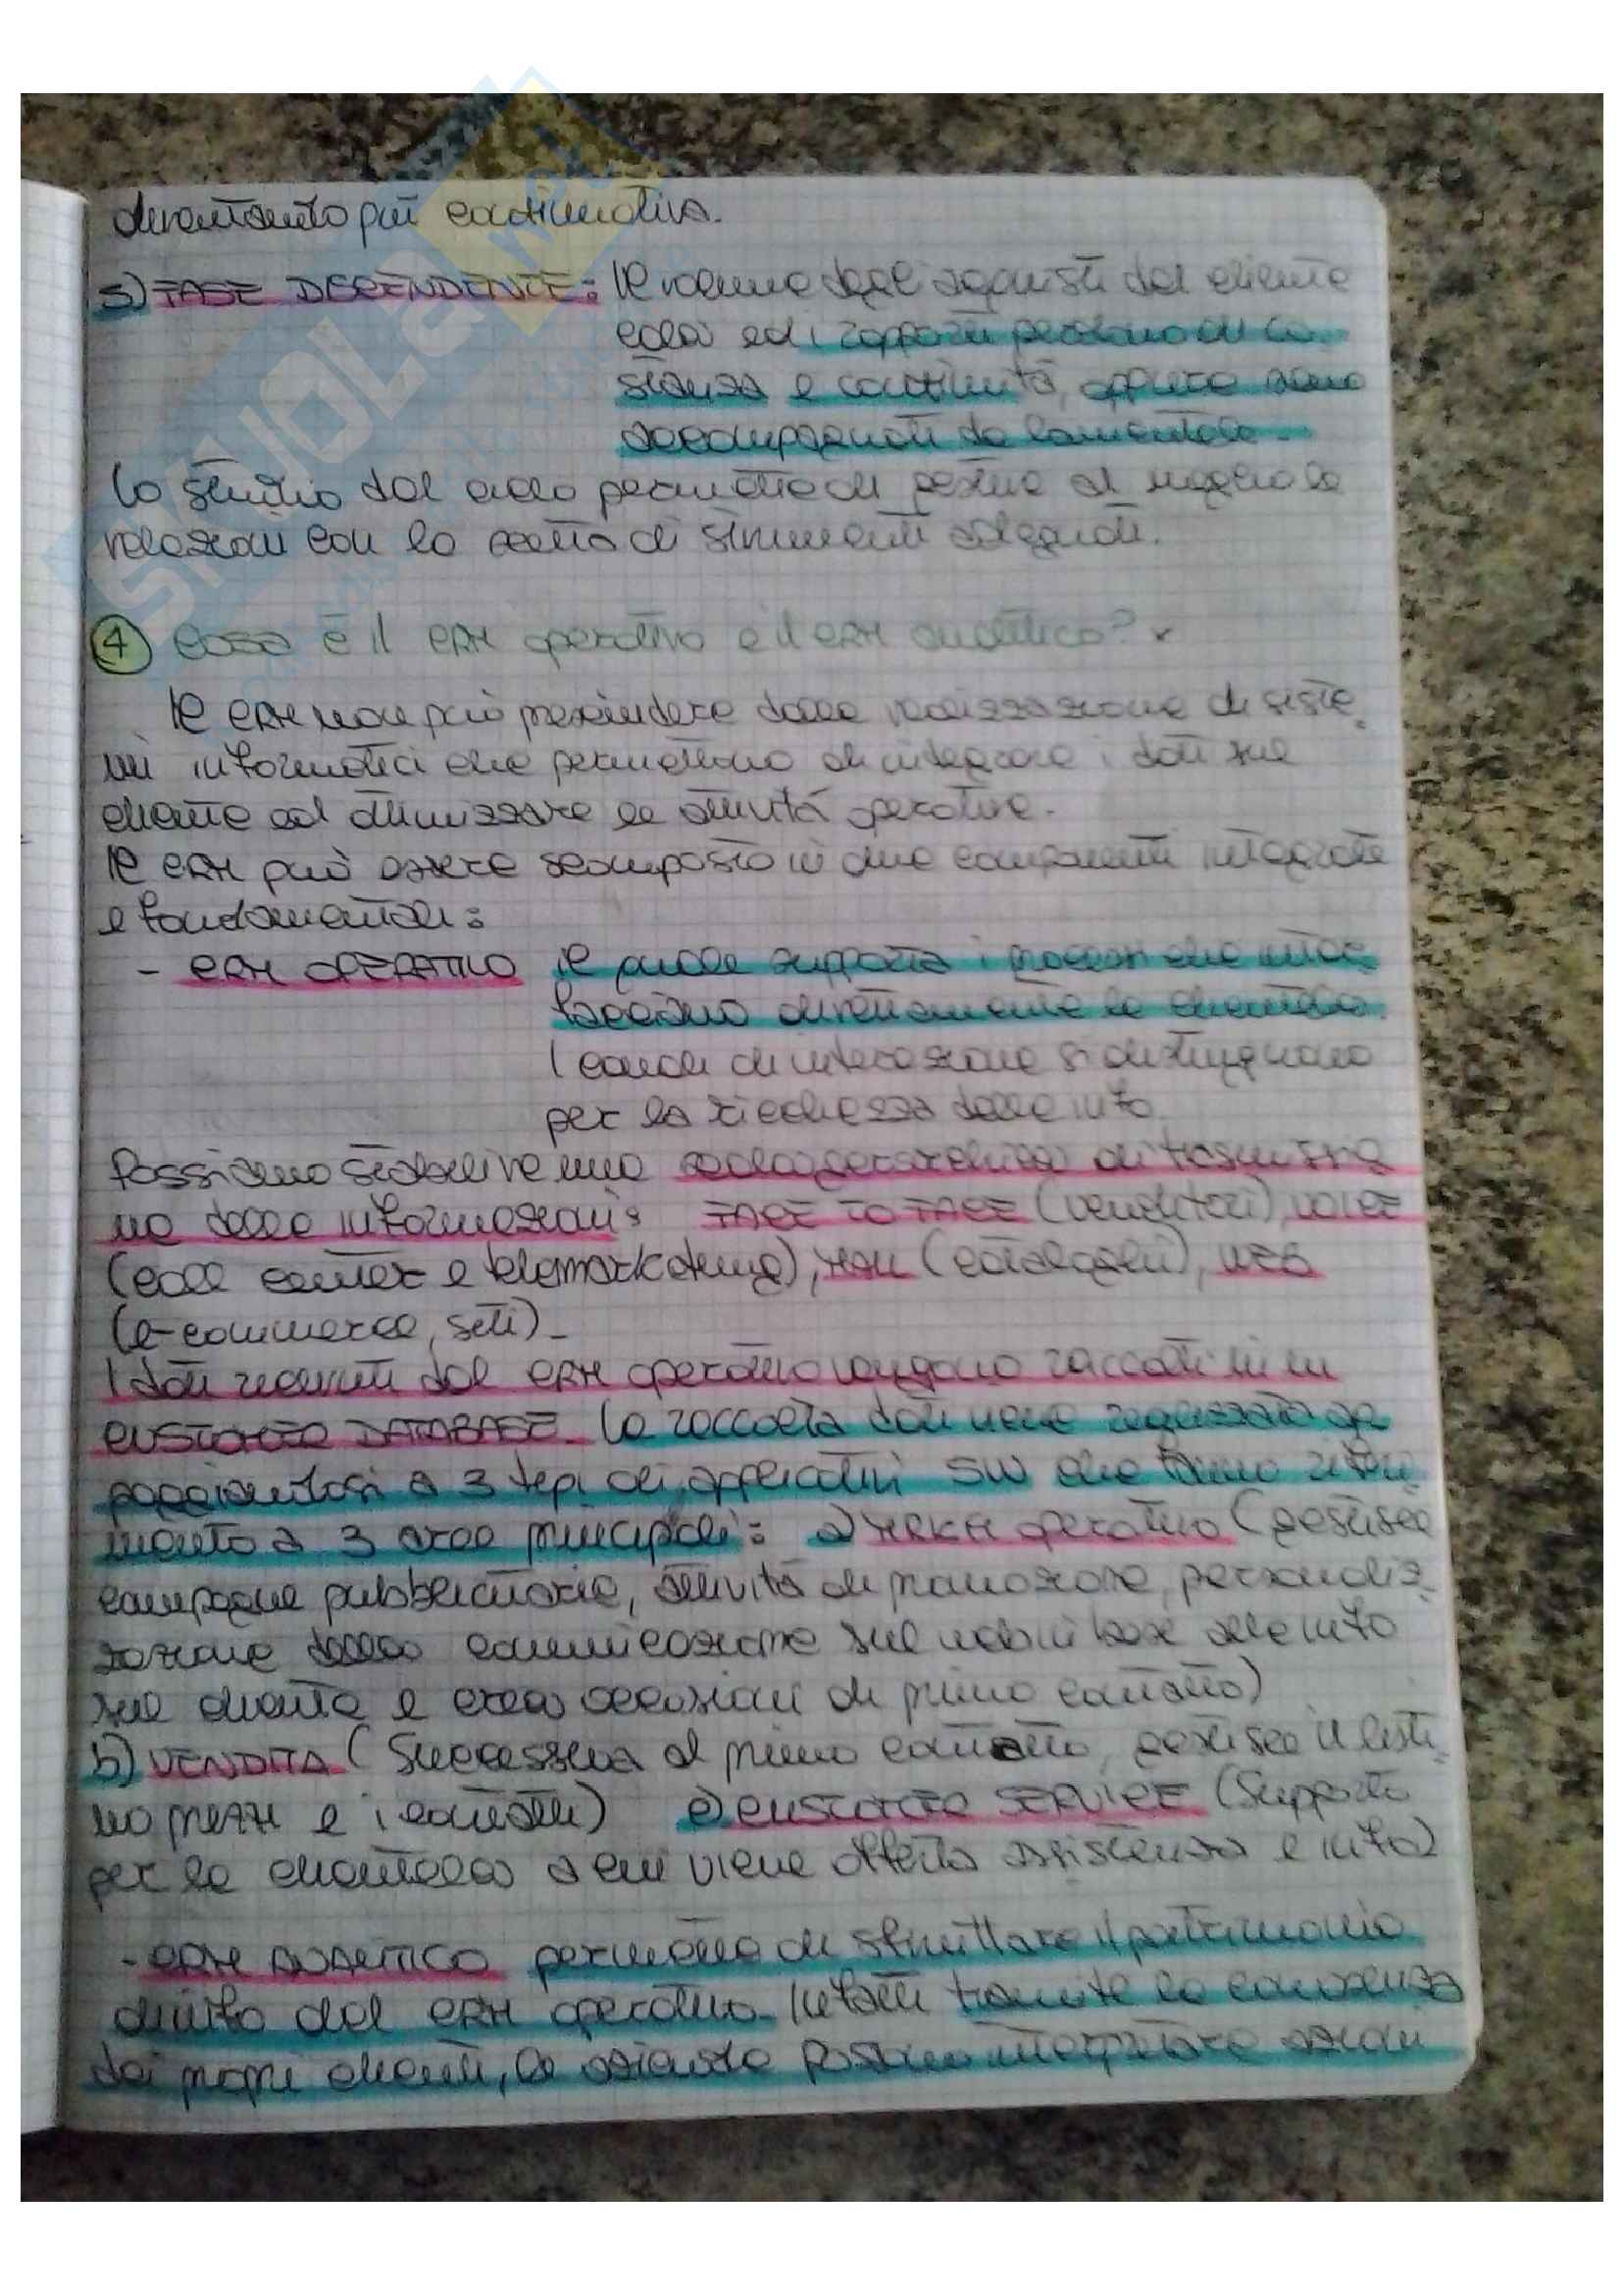 diventando più continuativa.
5) FASE DISCENDENTE: Il volume degli acquisti del cliente
cala ed i rapporti perdono di co
stanza e continuità, oppure sono
accompagnati da lamentele.
Lo studio del ciclo permette di gestire al meglio le
relazioni con la scelta di strumenti adeguati.
4 Cosa è il CRM operativo e il CRM analitico? x
Il CRM non può prescindere dalla realizzazione di siste
mi informatici che permettono di integrare i dati sul
cliente ed ottimizzare le attività operative.
Il CRM può essere scomposto in due componenti integrate
e fondamentali:
- CRM OPERATIVO il quale supporta i processi che inter
facciano direttamente la clientela.
I canali di interazione si distinguono
per la ricchezza delle info.
Possiamo stabilire una scala gerarchica di trasmissio
ne delle informazioni: FACE TO FACE (venditori), VOICE
(call center e telemarketing), MAIL (cataloghi), WEB
(e-commerce, siti).
I dati ricevuti dal CRM operativo vengono raccolti in un
CUSTOMER DATABASE. La raccolta dati viene realizzata ap
poggiandosi a 3 tipi di applicativi SW che fanno riferi
mento a 3 aree principali: a) MRKH operativo (gestisce
campagne pubblicitarie, attività di promozione, personaliz
zazione della comunicazione sul web in base alle info
sul cliente e crea occasioni di primo contatto)
b) VENDITA (Successiva al primo contatto, gestisce il listi
no prezzi e i contatti) c) CUSTOMER SERVICE (Supporto
per la clientela a cui viene offerta assistenza e info)
- CRM ANALITICO permette di sfruttare il patrimonio
di info del CRM operativo. Infatti tramite la conoscenza
dei propri clienti, le aziende possono intraprendere azioni
SKUOLA.net